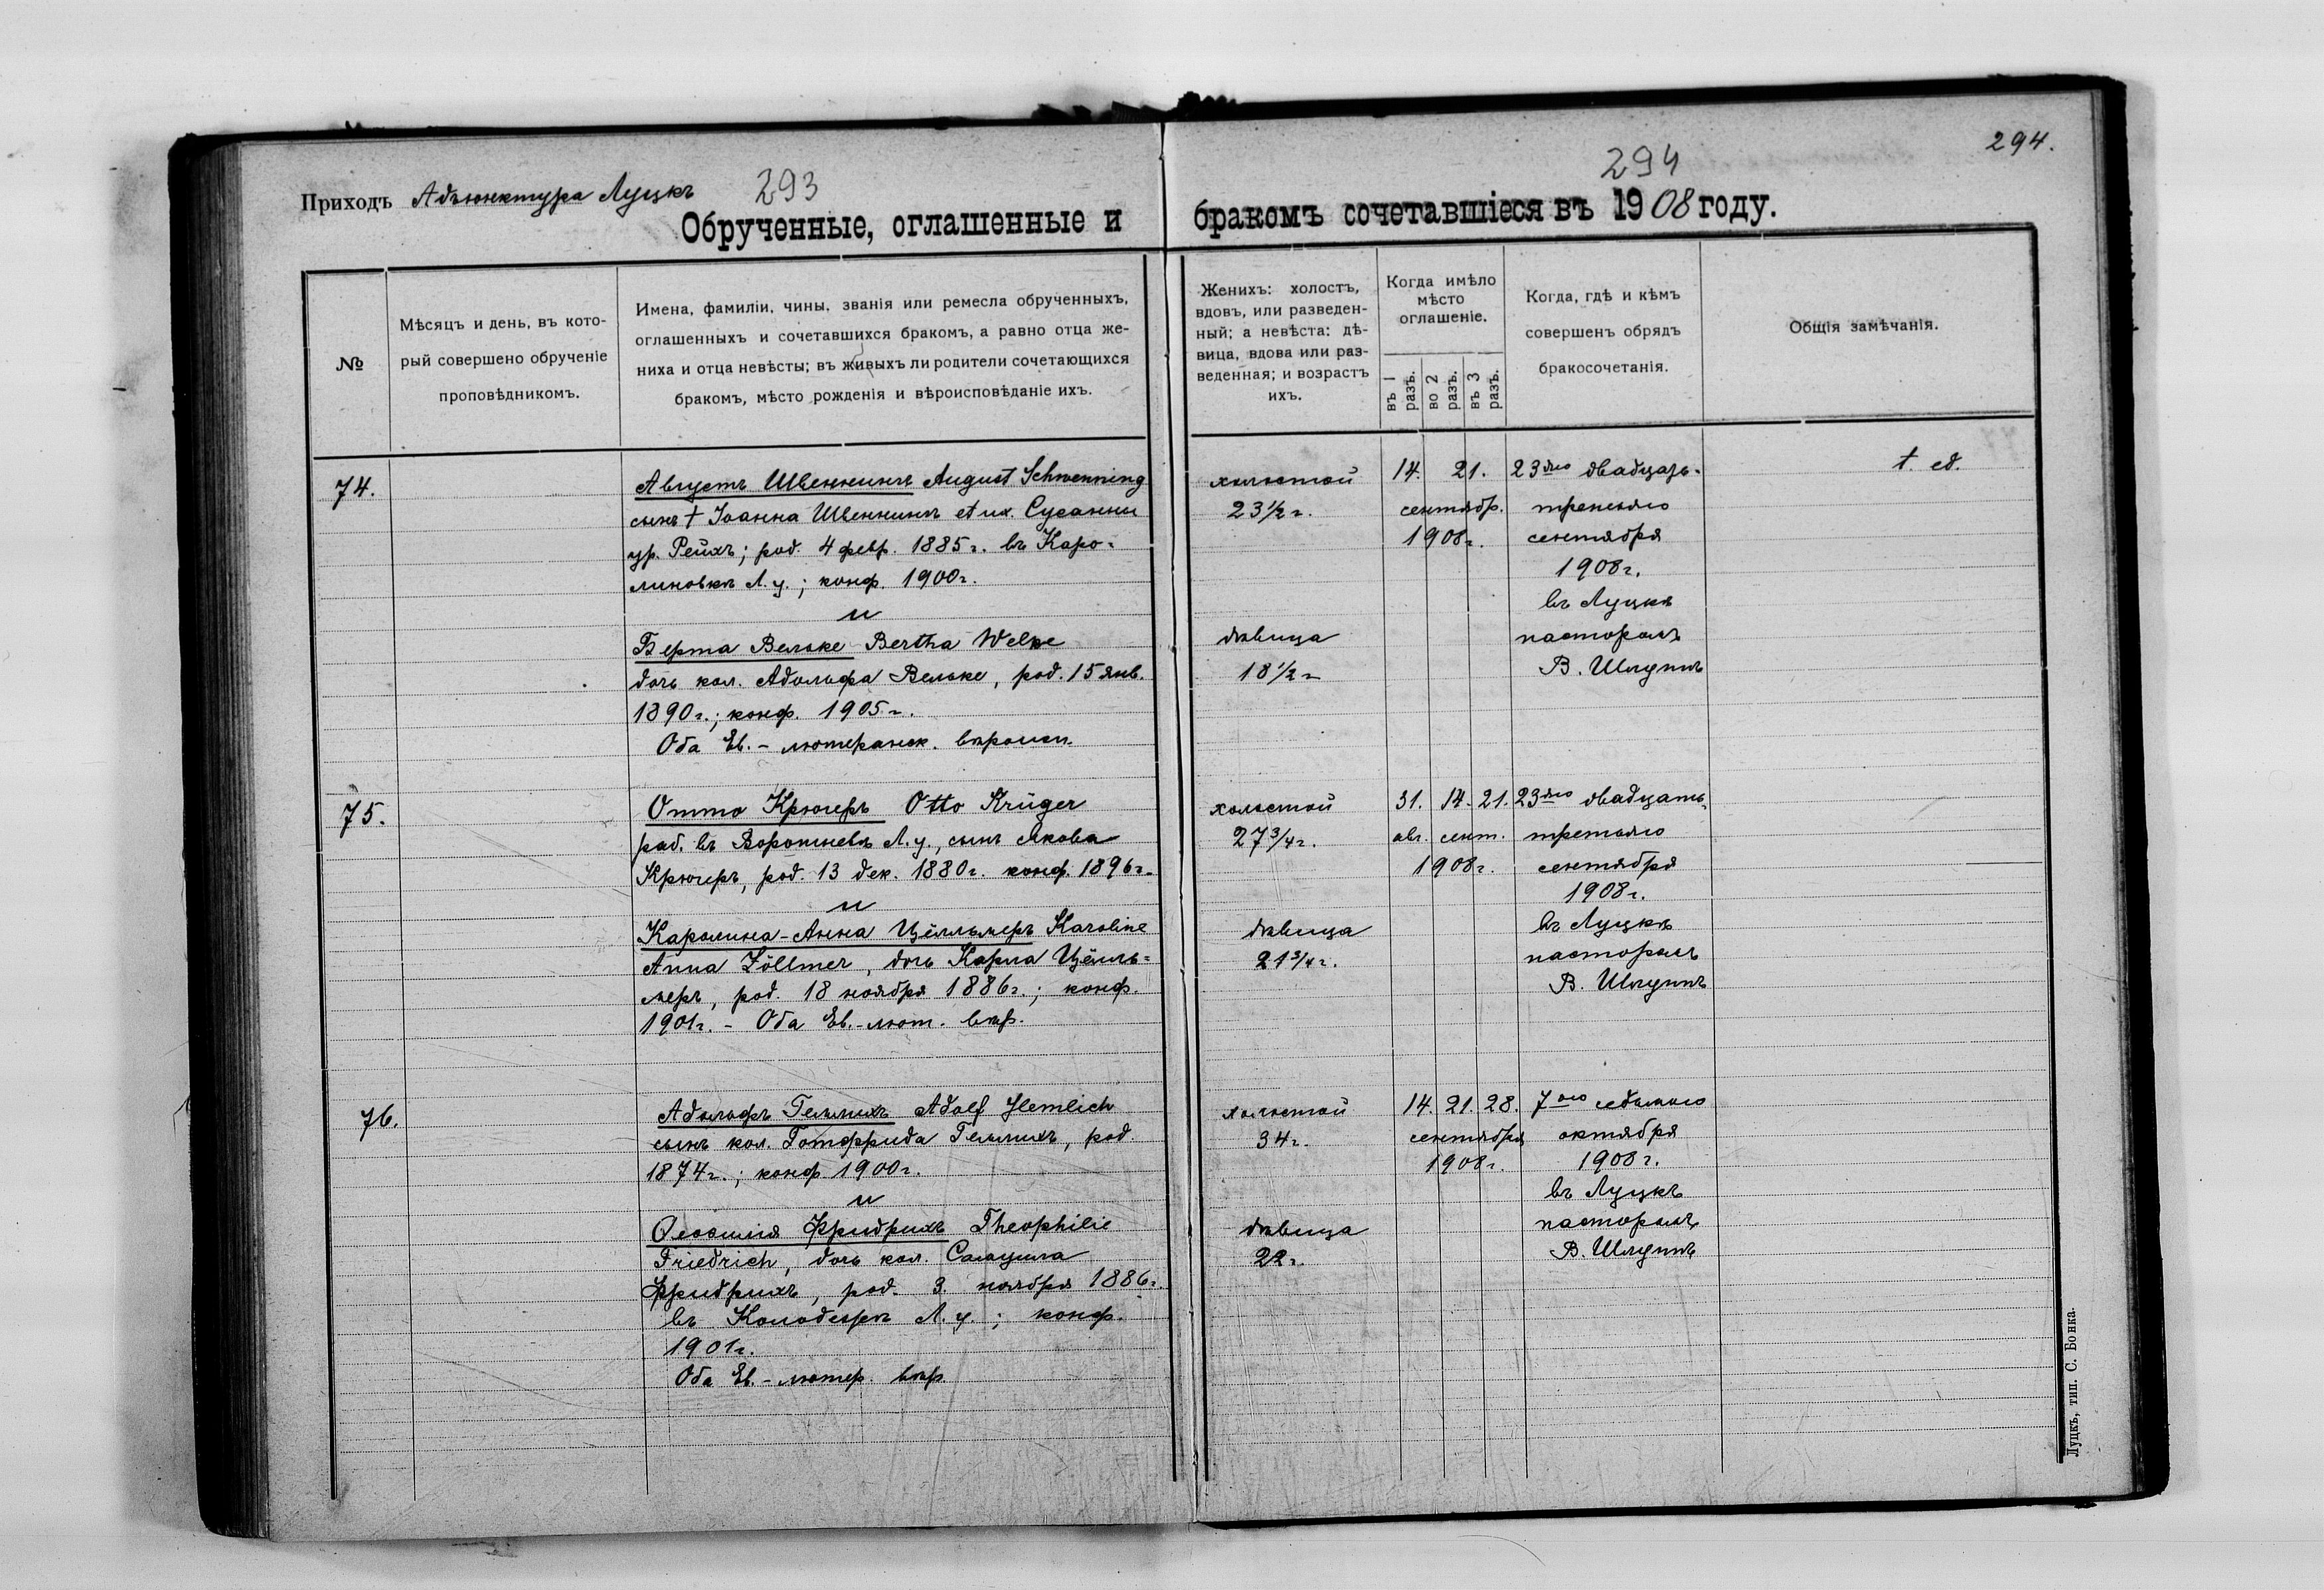 Приходъ Адъюнктура Луцкъ 293
Обрученные, оглашенные и
№
Мѣсяцъ и день, въ кото-
рый совершено обрученіе
проповѣдникомъ.
Имена, фамиліи, чины, званія или ремесла обрученныхъ,
оглашенныхъ и сочетавшихся бракомъ, а равно отца же-
ниха и отца невѣсты; въ живыхъ ли родители сочетающихся
бракомъ, мѣсто рожденія и вѣроисповѣданіе ихъ.
74.
Августъ Швеннингъ August Schwenning
сынъ † Іоанна Швеннингъ et ux. Сусанны
ур. Рейхъ; род. 4 февр. 1885 г. въ Каро-
линовкѣ Л. у.; конф. 1900 г.
и
Берта Вельке Bertha Welke
дочь кол. Адольфа Вельке, род. 15 янв.
1890 г.; конф. 1905 г.
Оба Ев.-лютеранск. вѣроисп.
75.
Отто Крюгеръ Otto Krüger
раб. въ Воротневѣ Л. у., сынъ Якова
Крюгеръ, род. 13 дек. 1880 г. конф. 1896 г.
и
Каролина-Анна Цёлльмеръ Karoline
Anna Zöllmer, дочь Карла Цёлль-
меръ, род. 18 ноября 1886 г.; конф.
1901 г. - Оба Ев.-лют. вѣр.
76.
Адольфъ Гемлихъ Adolf Hemlich
сынъ кол. Готфрида Гемлихъ, род.
1874 г.; конф 1900 г.
и
Ѳеофилія Фридрихъ Theophilie
Friedrich, дочь кол. Самуила
Фридрихъ, род. 3 ноября 1886 г.
въ Колодезѣ Л. у.; конф.
1901 г.
Оба Ев.-лютер. вѣр.
294
294.
бракомъ сочетавшіеся въ 1908 году.
Женихъ: холостъ,
вдовъ, или разведен-
ный; а невѣста: дѣ-
вица, вдова или раз-
веденная; и возрастъ
ихъ.
Когда имѣло
мѣсто
оглашеніе.
въ 1 разъ.
во 2 разъ.
въ 3 разъ.
Когда, гдѣ и кѣмъ
совершенъ обрядъ
бракосочетанія.
Общія замѣчанія.
холостой
23 1/2 г.
14. 21.
сентябр.
1908 г.
23го двадцать-
третьяго
сентября
1908 г.
въ Луцкѣ
пасторомъ
В. Шлуппъ
t. ed.
дѣвица
18 1/2 г
холостой
27 3/4 г.
31. 14. 21.
авг. сент.
1908 г.
23го двадцать-
третьяго
сентября
1908 г.
въ Луцкѣ
пасторомъ
В. Шлуппъ
дѣвица
21 3/4 г.
холостой
34 г.
14. 21. 28.
сентября
1908 г.
7ого седьмого
октября
1908 г.
въ Луцкѣ
пасторомъ
В. Шлуппъ
дѣвица
22 г.
Луцкъ, тип. С. Бонка.